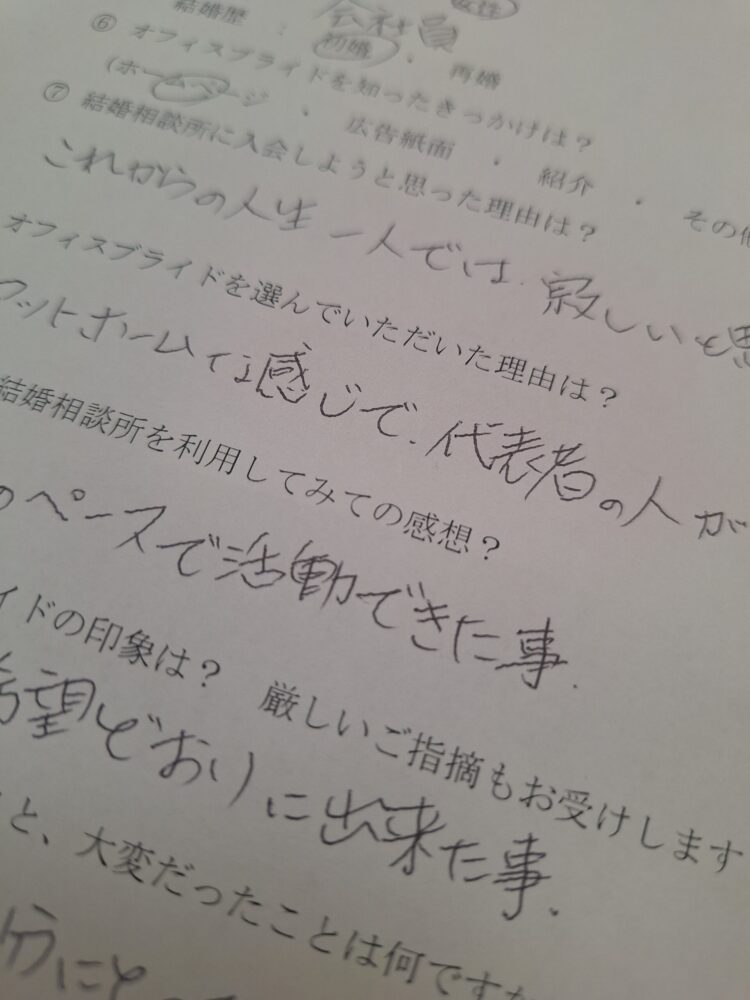 女性
会社員
結婚歴 : 初婚 ・ 再婚
⑥ オフィスブライドを知ったきっかけは？
(ホームページ ・ 広告紙面 ・ 紹介 ・ その他
⑦ 結婚相談所に入会しようと思った理由は？
これからの人生一人では、寂しいと思
オフィスブライドを選んでいただいた理由は？
アットホームな感じで、代表者の人が
結婚相談所を利用してみての感想？
のペースで活動できた事.
イドの印象は？　厳しいご指摘もお受けします
希望どおりに出来た事.
と、大変だったことは何ですか
分にと